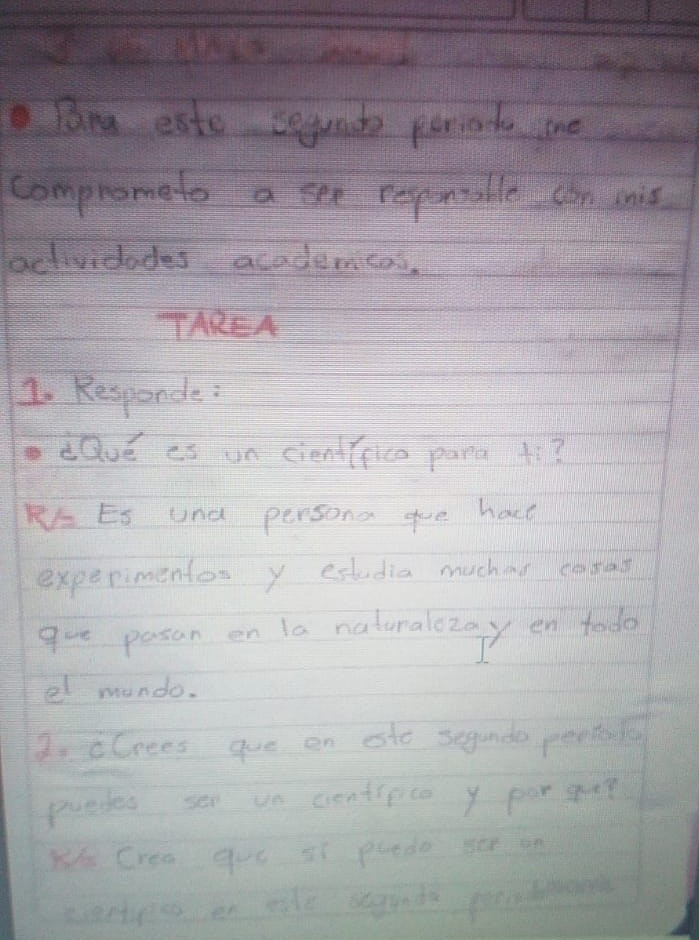 Para este segundo periodo me
comprometo a ser responsable con mis
actividades academicas.
TAREA
1. Responde:
• ¿Qué es un científico para ti?
R/= Es una persona que hace
experimentos y estudia muchas cosas
que pasan en la naturaleza y en todo
el mundo.
2. ¿Crees que en este segundo periodo
puedes ser un científico y por que?
R/= Creo que si puedo ser un
científico en este segundo